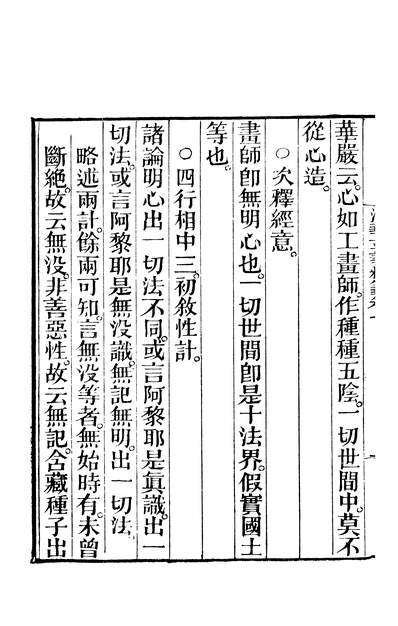 華嚴云。心如工畫師。作種種五陰。一切世間中。莫不
從心造。
○次釋經意。
畫師卽無明心也。一切世間卽是十法界。假實國土
等也。
○四行相中三。初敘性計。
諸論明心出一切法不同。或言阿黎耶是眞識。出一
切法。或言阿黎耶是無没識。無記無明。出一切法。
略述兩計。餘兩可知。言無没等者。無始時有。未曾
斷絶。故云無没。非善惡性。故云無記。含藏種子出